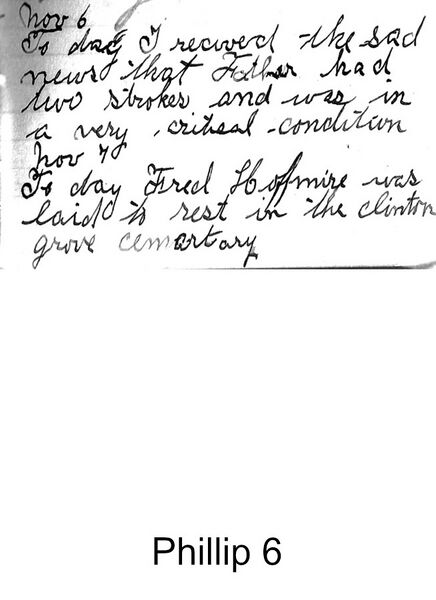 Nov 6
To day I recived the sad
news that Father had
two strokes and was in
a very critical condition
Nov 7
To day Fred Hofmire was
laid to rest in the clinton
grove cemartary
Phillip 6